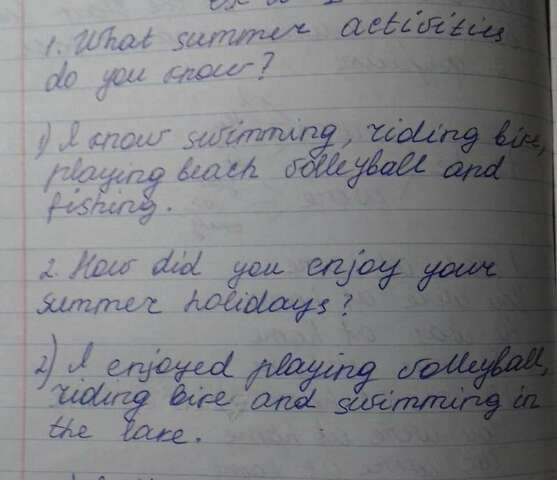 1. What summer activities
do you know?
1) I know swimming, riding bike,
playing beach volleyball and
fishing.
2. How did you enjoy your
summer holidays?
2) I enjoyed playing volleyball,
riding bike and swimming in
the lake.